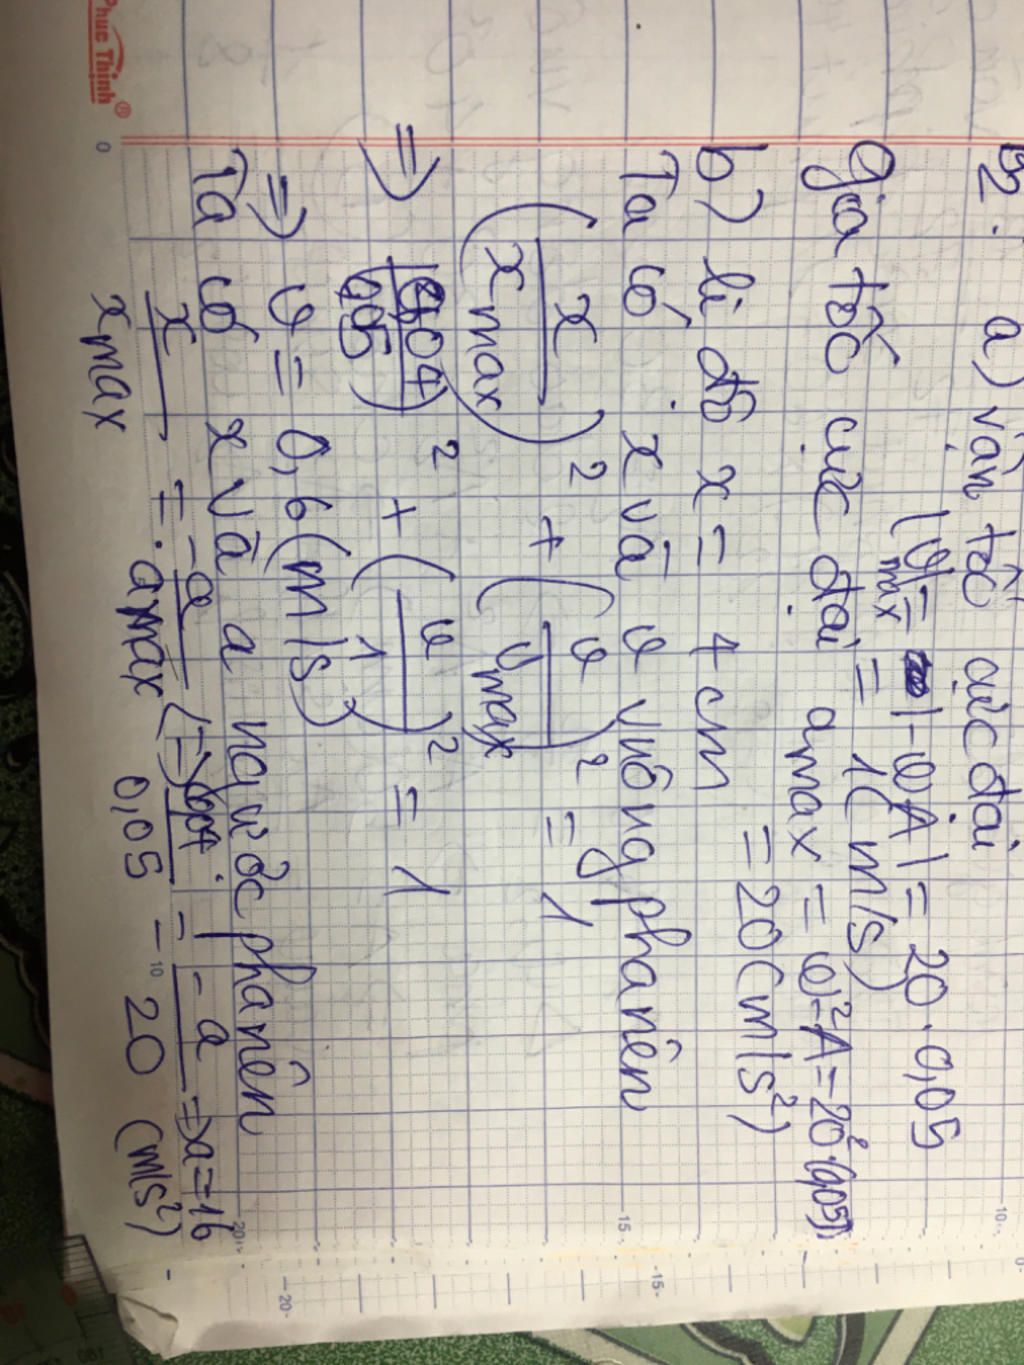 B2. a) vận tốc cực đại
|v max| = |-ωA| = 20.0,05
= 1(m/s)
gia tốc cực đại amax = ω²A = 20².0,05
= 20(m/s²)
b) li độ x = 4 cm
Ta có: x và v vuông pha nên
(x/xmax)² + (v/vmax)² = 1
⇒ (0,04/0,05)² + (v/1)² = 1
⇒ v = 0,6(m/s)
Ta có x và a ngược pha nên
x/xmax = -a/amax ⇔ 0,04/0,05 = -a/20 ⇒ a = -16
(m/s²)
Phuc Thinh®
0
10
15
20